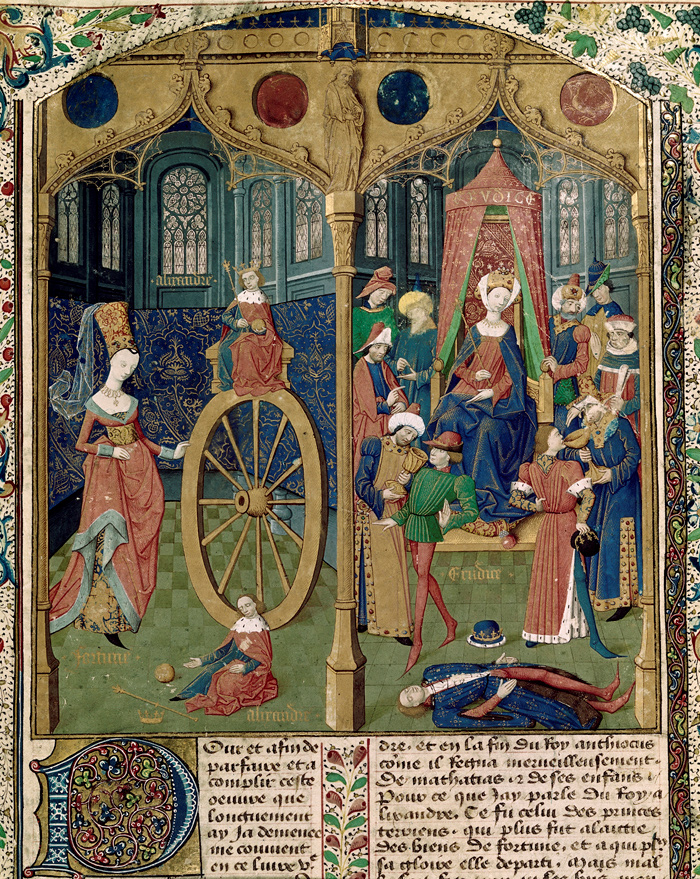 alixandre
fortune
alixandre
Pour et afin de
parfaire et a
complir ceste
oeuvre que
longuement
ay Ja demenee
me convient
en ce livre
dre. et en la fin du Roy anthiocus
come il Regna merveilleusement
De mathatias et de ses enfans
Pour ce que Jay parle Du Roy a
lixandre. Ce fu celui des princes
terriens. qui plus fut alaictie
des biens de fortune. et a qui
sa gloire elle departi. Mais mal